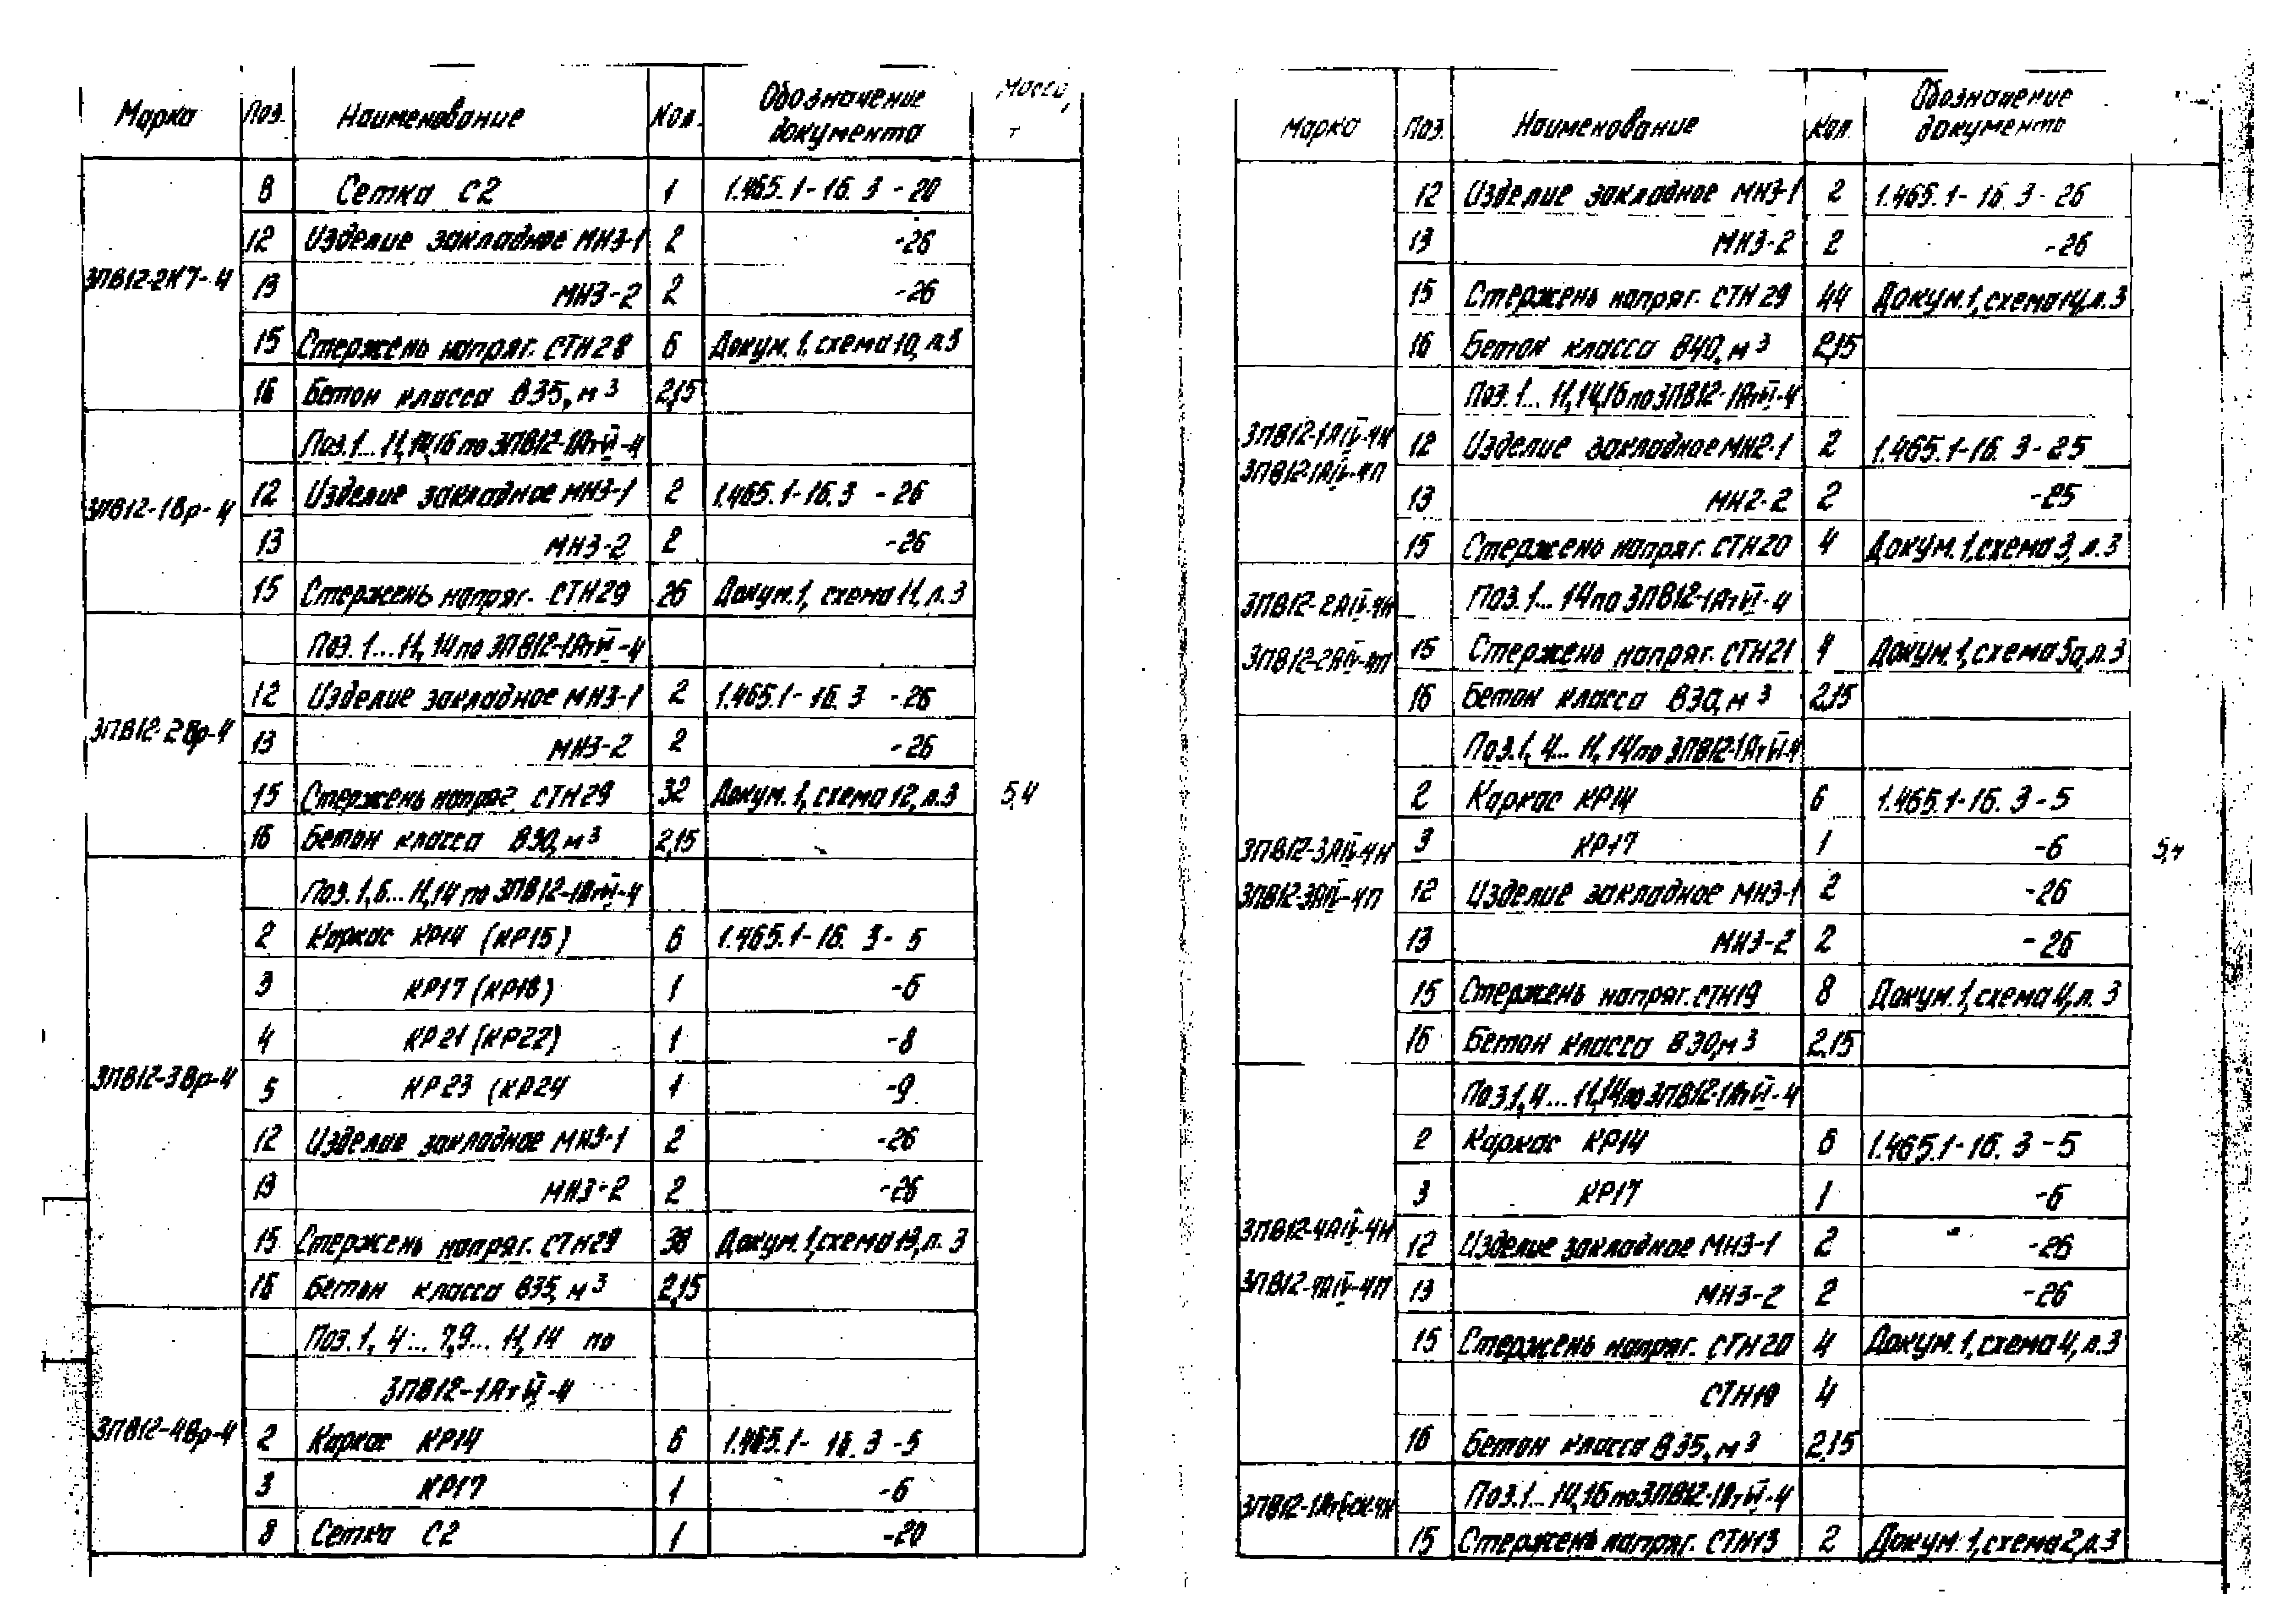 Марка Поз. Наименование Кол. Обозначение документа Масса, т
8 Сетка С2 1 1.465.1-16.3 -20
12 Изделие закладное МН3-1 2 -26
3ПВ12-2К7-4 13 МН3-2 2 -26
15 Стержень напряг. СТН28 6 Докум.1, схема 10, л.3
16 Бетон класса В35, м³ 2,15
Поз.1...11,14,16 по 3ПВ12-1АтVI-4
3ПВ12-1Вр-4 12 Изделие закладное МН3-1 2 1.465.1-16.3 -26
13 МН3-2 2 -26
15 Стержень напряг. СТН29 26 Докум.1, схема 11, л.3
Поз.1...11, 14 по 3ПВ12-1АтVI-4
12 Изделие закладное МН3-1 2 1.465.1-16.3 -26
3ПВ12-2Вр-4 13 МН3-2 2 -26
15 Стержень напряг. СТН29 32 Докум.1, схема 12, л.3 5,4
16 Бетон класса В30, м³ 2,15
Поз.1,6...11,14 по 3ПВ12-1АтVI-4
2 Каркас КР14 (КР15) 6 1.465.1-16.3-5
3 КР17 (КР18) 1 -6
4 КР21 (КР22) 1 -8
3ПВ12-3Вр-4 5 КР23 (КР24 1 -9
12 Изделие закладное МН3-1 2 -26
13 МН3-2 2 -26
15 Стержень напряг. СТН29 38 Докум.1, схема 13, л.3
16 Бетон класса В35, м³ 2,15
Поз.1, 4...7,9...11,14 по
3ПВ12-1АтVI-4
3ПВ12-4Вр-4 2 Каркас КР14 6 1.465.1-16.3-5
3 КР17 1 -6
8 Сетка С2 1 -20
Марка Поз. Наименование Кол. Обозначение документа
12 Изделие закладное МН3-1 2 1.465.1-16.3-26
13 МН3-2 2 -26
15 Стержень напряг. СТН29 44 Докум.1, схема 14, л.3
16 Бетон класса В40, м³ 2,15
Поз.1...11,14,16 по 3ПВ12-1АтVI-4
3ПВ12-1АIV-4Н 12 Изделие закладное МН2-1 2 1.465.1-16.3-25
3ПВ12-1АIV-4П
13 МН2-2 2 -25
15 Стержень напряг. СТН20 4 Докум.1, схема 3, л.3
3ПВ12-2АIV-4Н Поз.1...14 по 3ПВ12-1АтVI-4
3ПВ12-2АIV-4П 15 Стержень напряг. СТН21 4 Докум.1, схема 5а, л.3
16 Бетон класса В30, м³ 2,15
Поз.1, 4...11, 14 по 3ПВ12-1АтVI-4
2 Каркас КР14 6 1.465.1-16.3-5
3ПВ12-3АIV-4Н 3 КР17 1 -6 5,4
3ПВ12-3АIV-4П 12 Изделие закладное МН3-1 2 -26
13 МН3-2 2 -26
15 Стержень напряг. СТН19 8 Докум.1, схема 4, л.3
16 Бетон класса В30, м³ 2,15
Поз.1, 4...11,14 по 3ПВ12-1АтVI-4
2 Каркас КР14 6 1.465.1-16.3-5
3 КР17 1 -6
3ПВ12-4АIV-4Н 12 Изделие закладное МН3-1 2 -26
3ПВ12-4АIV-4П 13 МН3-2 2 -26
15 Стержень напряг. СТН20 4 Докум.1, схема 4, л.3
СТН19 4
16 Бетон класса В35, м³ 2,15
Поз.1...14,16 по 3ПВ12-1АтVI-4
15 Стержень напряг. СТН13 2 Докум.1, схема 2, л.3